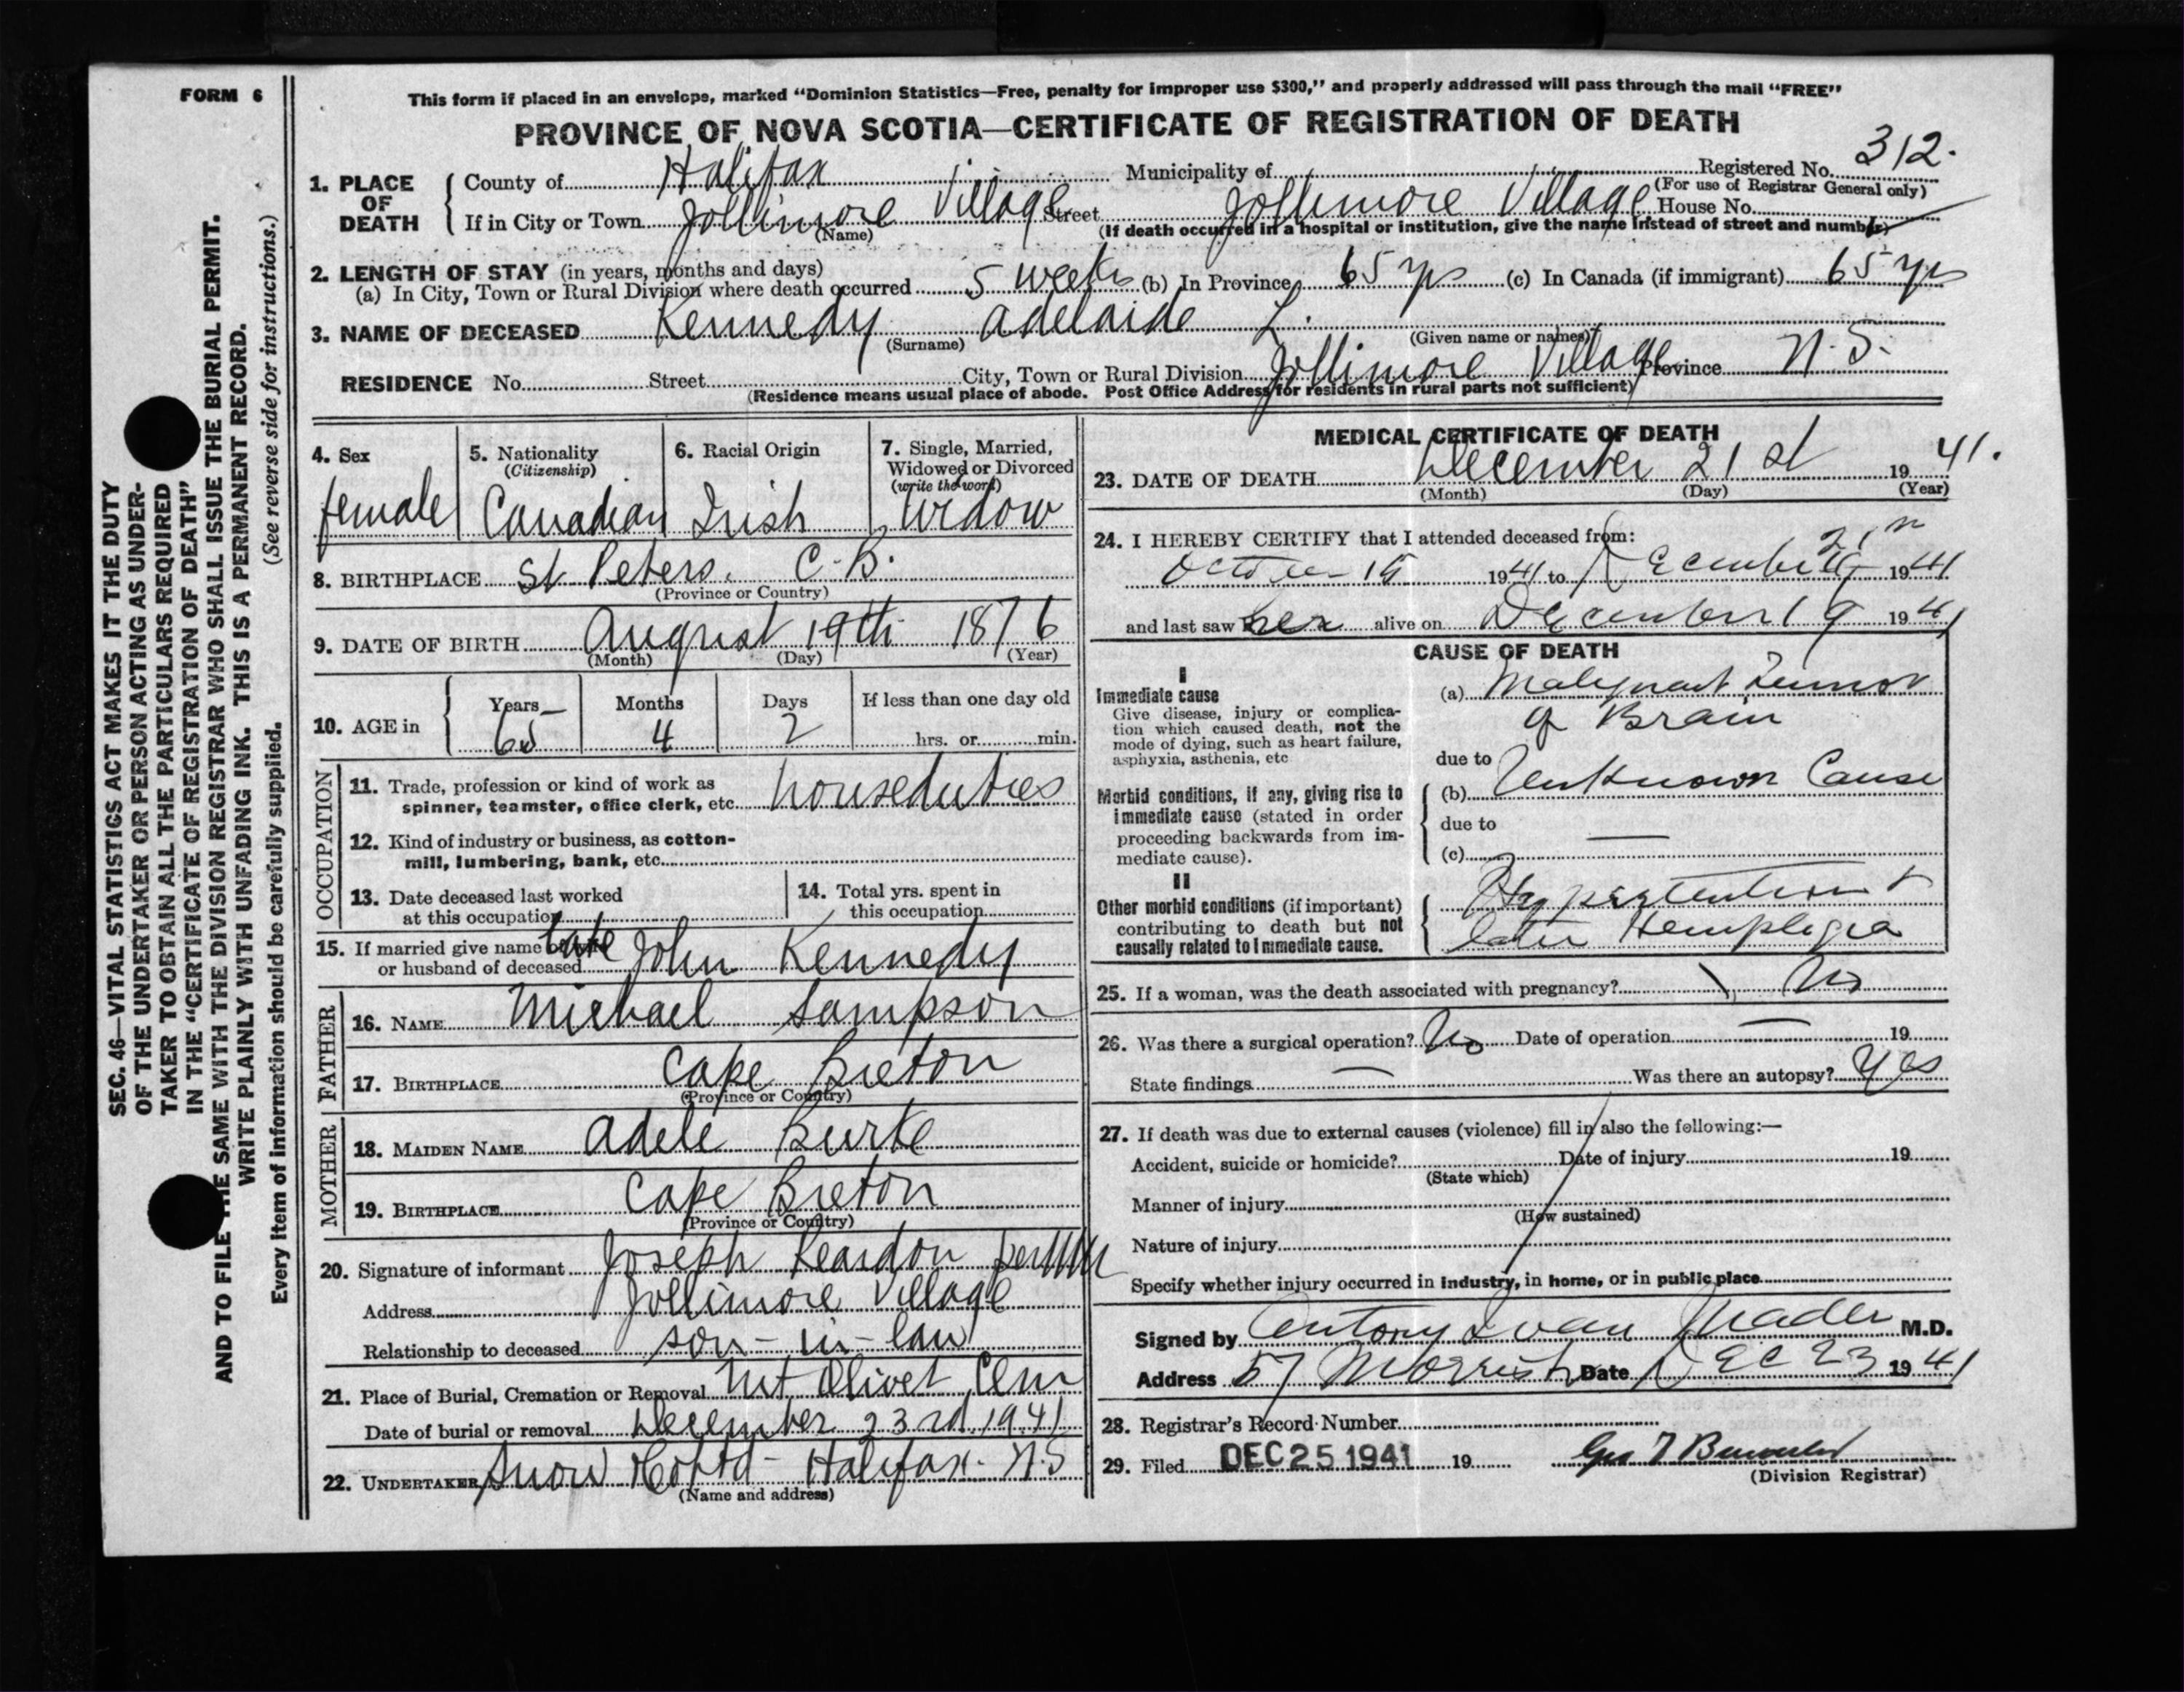 FORM 6
This form if placed in an envelope, marked "Dominion Statistics—Free, penalty for improper use $300," and properly addressed will pass through the mail "FREE"
PROVINCE OF NOVA SCOTIA—CERTIFICATE OF REGISTRATION OF DEATH
SEC. 46—VITAL STATISTICS ACT MAKES IT THE DUTY
OF THE UNDERTAKER OR PERSON ACTING AS UNDER-
TAKER TO OBTAIN ALL THE PARTICULARS REQUIRED
IN THE "CERTIFICATE OF REGISTRATION OF DEATH"
AND TO FILE THE SAME WITH THE DIVISION REGISTRAR WHO SHALL ISSUE THE BURIAL PERMIT.
WRITE PLAINLY WITH UNFADING INK. THIS IS A PERMANENT RECORD.
Every item of information should be carefully supplied. (See reverse side for instructions.)
1. PLACE OF DEATH
County of Halifax Municipality of Registered No. 312.
(For use of Registrar General only)
If in City or Town Jollimore Village Street Jollimore Village House No.
(Name) (If death occurred in a hospital or institution, give the name instead of street and number)
2. LENGTH OF STAY (in years, months and days)
(a) In City, Town or Rural Division where death occurred 5 weeks (b) In Province 65 yrs (c) In Canada (if immigrant) 65 yrs
3. NAME OF DECEASED Kennedy Adelaide L.
(Surname) (Given name or names)
RESIDENCE No. Street City, Town or Rural Division Jollimore Village Province N.S.
(Residence means usual place of abode. Post Office Address for residents in rural parts not sufficient)
4. Sex
female
5. Nationality
(Citizenship)
Canadian
6. Racial Origin
Irish
7. Single, Married,
Widowed or Divorced
(write the word)
Widow
8. BIRTHPLACE St Peters. C.B.
(Province or Country)
9. DATE OF BIRTH August 19th 1876
(Month) (Day) (Year)
10. AGE in
Years Months Days If less than one day old
65 4 2 hrs. or min.
OCCUPATION
11. Trade, profession or kind of work as
spinner, teamster, office clerk, etc. houseduties
12. Kind of industry or business, as cotton-
mill, lumbering, bank, etc.
13. Date deceased last worked
at this occupation
14. Total yrs. spent in
this occupation
15. If married give name of wife
or husband of deceased late John Kennedy
FATHER
16. NAME Michael Sampson
17. BIRTHPLACE Cape Breton
(Province or Country)
MOTHER
18. MAIDEN NAME Adele Burke
19. BIRTHPLACE Cape Breton
(Province or Country)
20. Signature of informant Joseph Reardon per
Address Jollimore Village
Relationship to deceased son-in-law
21. Place of Burial, Cremation or Removal Mt Olivet Cem
Date of burial or removal December 23rd 1941
22. UNDERTAKER Snow Co Ltd - Halifax. N.S
(Name and address)
MEDICAL CERTIFICATE OF DEATH
23. DATE OF DEATH December 21st 1941.
(Month) (Day) (Year)
24. I HEREBY CERTIFY that I attended deceased from:
October 15 1941 to December 21 1941
and last saw her alive on December 19 1941
CAUSE OF DEATH
I
Immediate cause
Give disease, injury or complica-
tion which caused death, not the
mode of dying, such as heart failure,
asphyxia, asthenia, etc
(a) Malignant Tumor
of Brain
due to
Morbid conditions, if any, giving rise to
immediate cause (stated in order
proceeding backwards from im-
mediate cause).
(b) Unknown Cause
due to —
(c)
II
Other morbid conditions (if important)
contributing to death but not
causally related to immediate cause.
Hypertension +
later Hemiplegia
25. If a woman, was the death associated with pregnancy? No
26. Was there a surgical operation? No Date of operation — 19
State findings — Was there an autopsy? Yes
27. If death was due to external causes (violence) fill in also the following:—
Accident, suicide or homicide? Date of injury 19
(State which)
Manner of injury
(How sustained)
Nature of injury
Specify whether injury occurred in industry, in home, or in public place
Signed by Antony Ivan Mader M.D.
Address 57 Morris St Date Dec 23 1941
28. Registrar's Record Number
29. Filed DEC 25 1941 19
(Division Registrar)